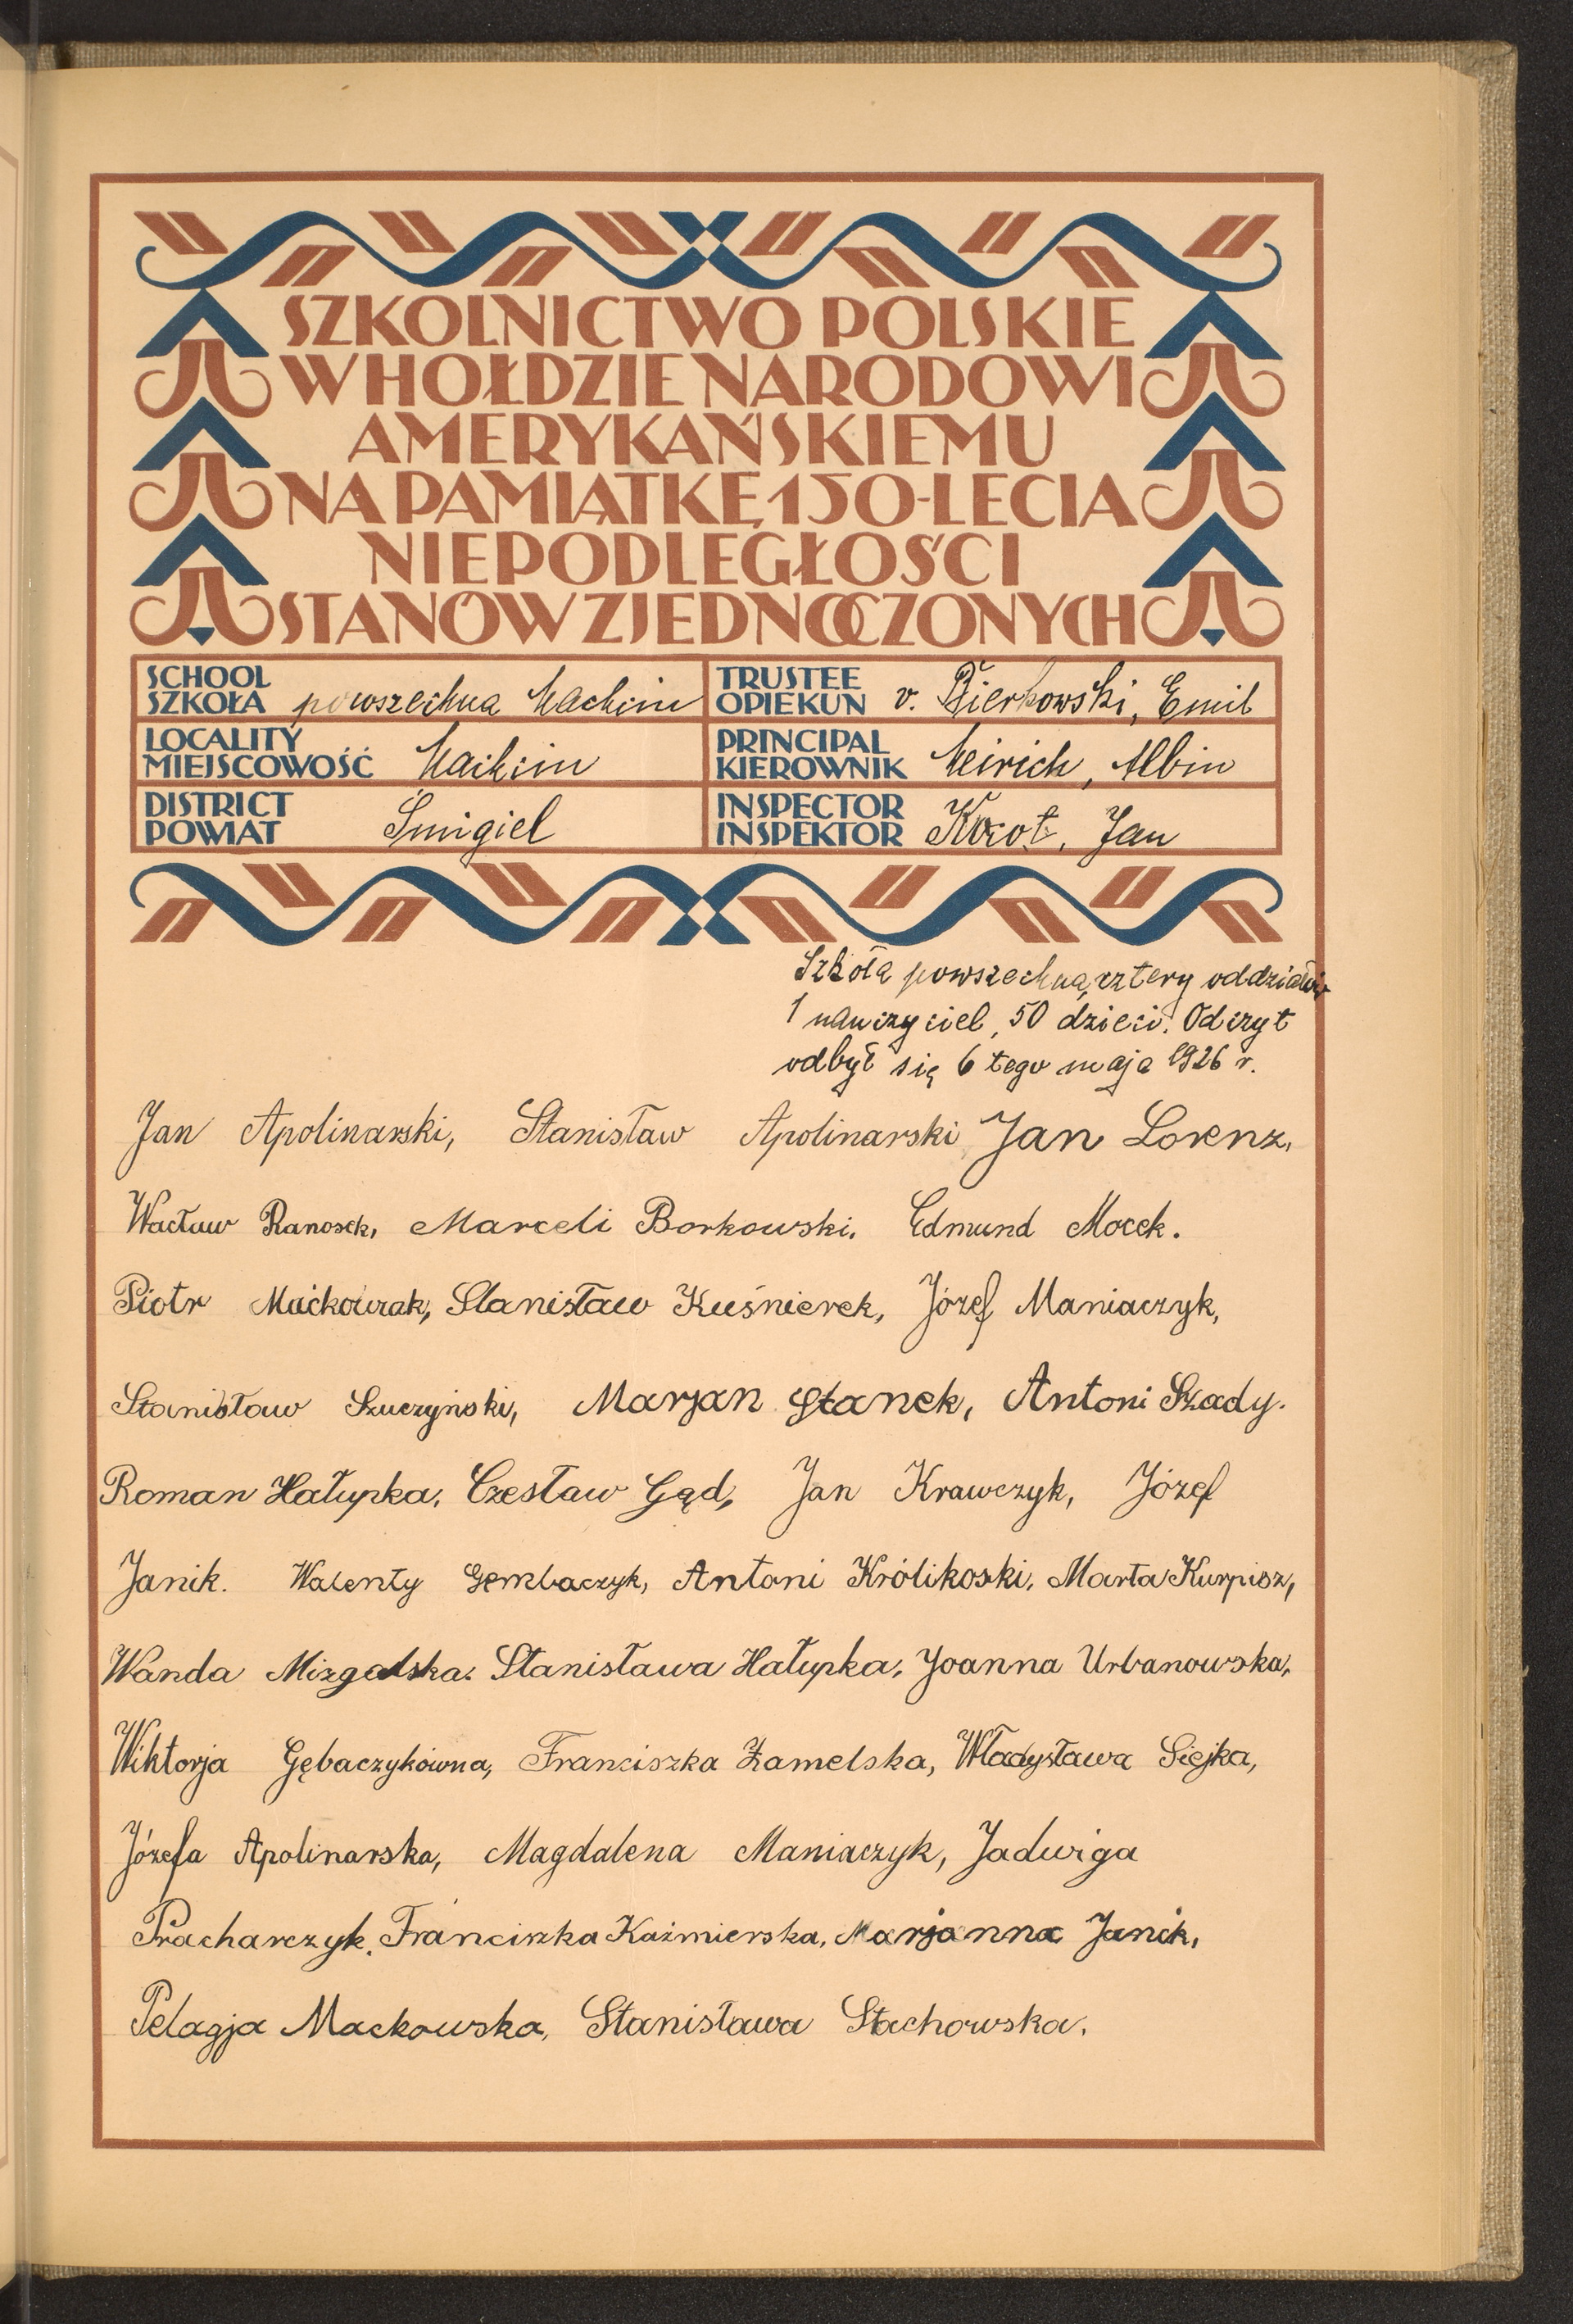 SZKOLNICTWO POLSKIE
W HOŁDZIE NARODOWI
AMERYKAŃSKIEMU
NA PAMIĄTKĘ 150-LECIA
NIEPODLEGŁOŚCI
STANÓW ZJEDNOCZONYCH
SCHOOL
SZKOŁA powszechna Machcin
TRUSTEE
OPIEKUN v. Bierkowski, Emil
LOCALITY
MIEJSCOWOŚĆ Machcin
PRINCIPAL
KIEROWNIK Meirich, Albin
DISTRICT
POWIAT Śmigiel
INSPECTOR
INSPEKTOR Kocot, Jan
Szkoła powszechna, cztery oddziałów
1 nauczyciel, 50 dzieci. Odczyt
odbył się 6 tego maja 1926 r.
Jan Apolinarski, Stanisław Apolinarski Jan Lorenz,
Wacław Ranosek, Marceli Borkowski, Edmund Mocek.
Piotr Maćkowiak, Stanisław Kuśnierek, Józef Maniaczyk,
Stanisław Szuczyński, Marjan Stanek, Antoni Szady.
Roman Hałupka, Czesław Gąd, Jan Krawczyk, Józef
Janik. Walenty Gembaczyk, Antoni Królikoski, Marta Kurpisz,
Wanda Mizgalska. Stanisława Hałupka, Joanna Urbanowska,
Wiktorja Gębaczykówna, Franciszka Żamelska, Władysława Siejka,
Józefa Apolinarska, Magdalena Maniaczyk, Jadwiga
Pracharczyk, Franciszka Kaźmierska, Marjanna Janik,
Pelagja Mackowska, Stanisława Stachowska.